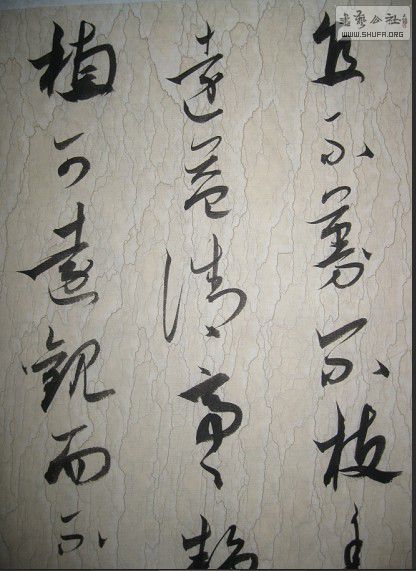 書藝公社
WWW.SHUFA.ORG
直不蔓不枝香
遠益清亭々静
植可遠觀而不